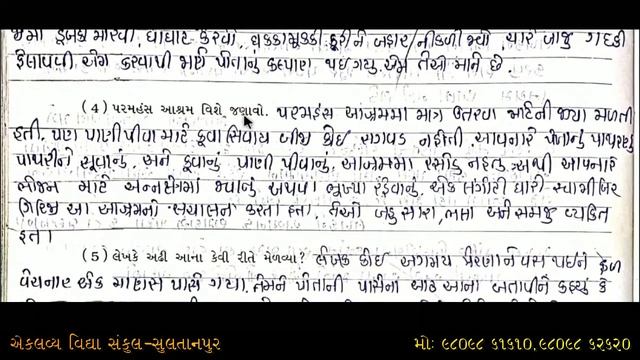 ડૂબકી મારવી, ઘોંઘાટ કરવો, ધક્કામુક્કી કરીને બહાર નીકળી જવું, ચારે બાજુ ગંદકી
ફેલાવવી એમ કરવાથી ભાઈ પોતાનું કલ્યાણ થઈ ગયુ એમ તેઓ માને છે.
(4) પરમહંસ આશ્રમ વિશે જણાવો. પરમહંસ આશ્રમમાં માત્ર ઉતરવા માટેની જગ્યા મળતી
હતી. પણ પાણી પીવા માટે કૂવા સિવાય બીજી કોઈ સગવડ નહોતી. આવનારે પોતાનું પાથરણું
પાથરીને સૂવાનું. અને કૂવાનું પાણી પીવાનું. આશ્રમમાં રસોડુ નહતુ. આથી આવનારે
ભોજન માટે અન્નક્ષેત્રમાં જવાનું અથવા ભૂખ્યા રહેવાનું. એક લંગોટી ધારી સ્વામી
આ આશ્રમનો સંચાલન કરતા હતા. તેઓ બહુ સારા, ભલા અને સમજુ વ્યક્તિ
હતા.
(5) લેખકે અઢી આના કેવી રીતે મેળવ્યા? લેખક કોઈ અગમ્ય પ્રેરણાને વશ થઈને ફળ
વેચનાર એક માણસ પાસે ગયા. તેમને પોતાની પાસેના આઠ આના બતાવીને કહ્યું કે
એકલવ્ય વિદ્યા સંકુલ-સુલતાનપુર મો: ૯૮૦૯૮ ૬૧૬૧૦,૯૮૦૯૮ ૬૨૬૨૦